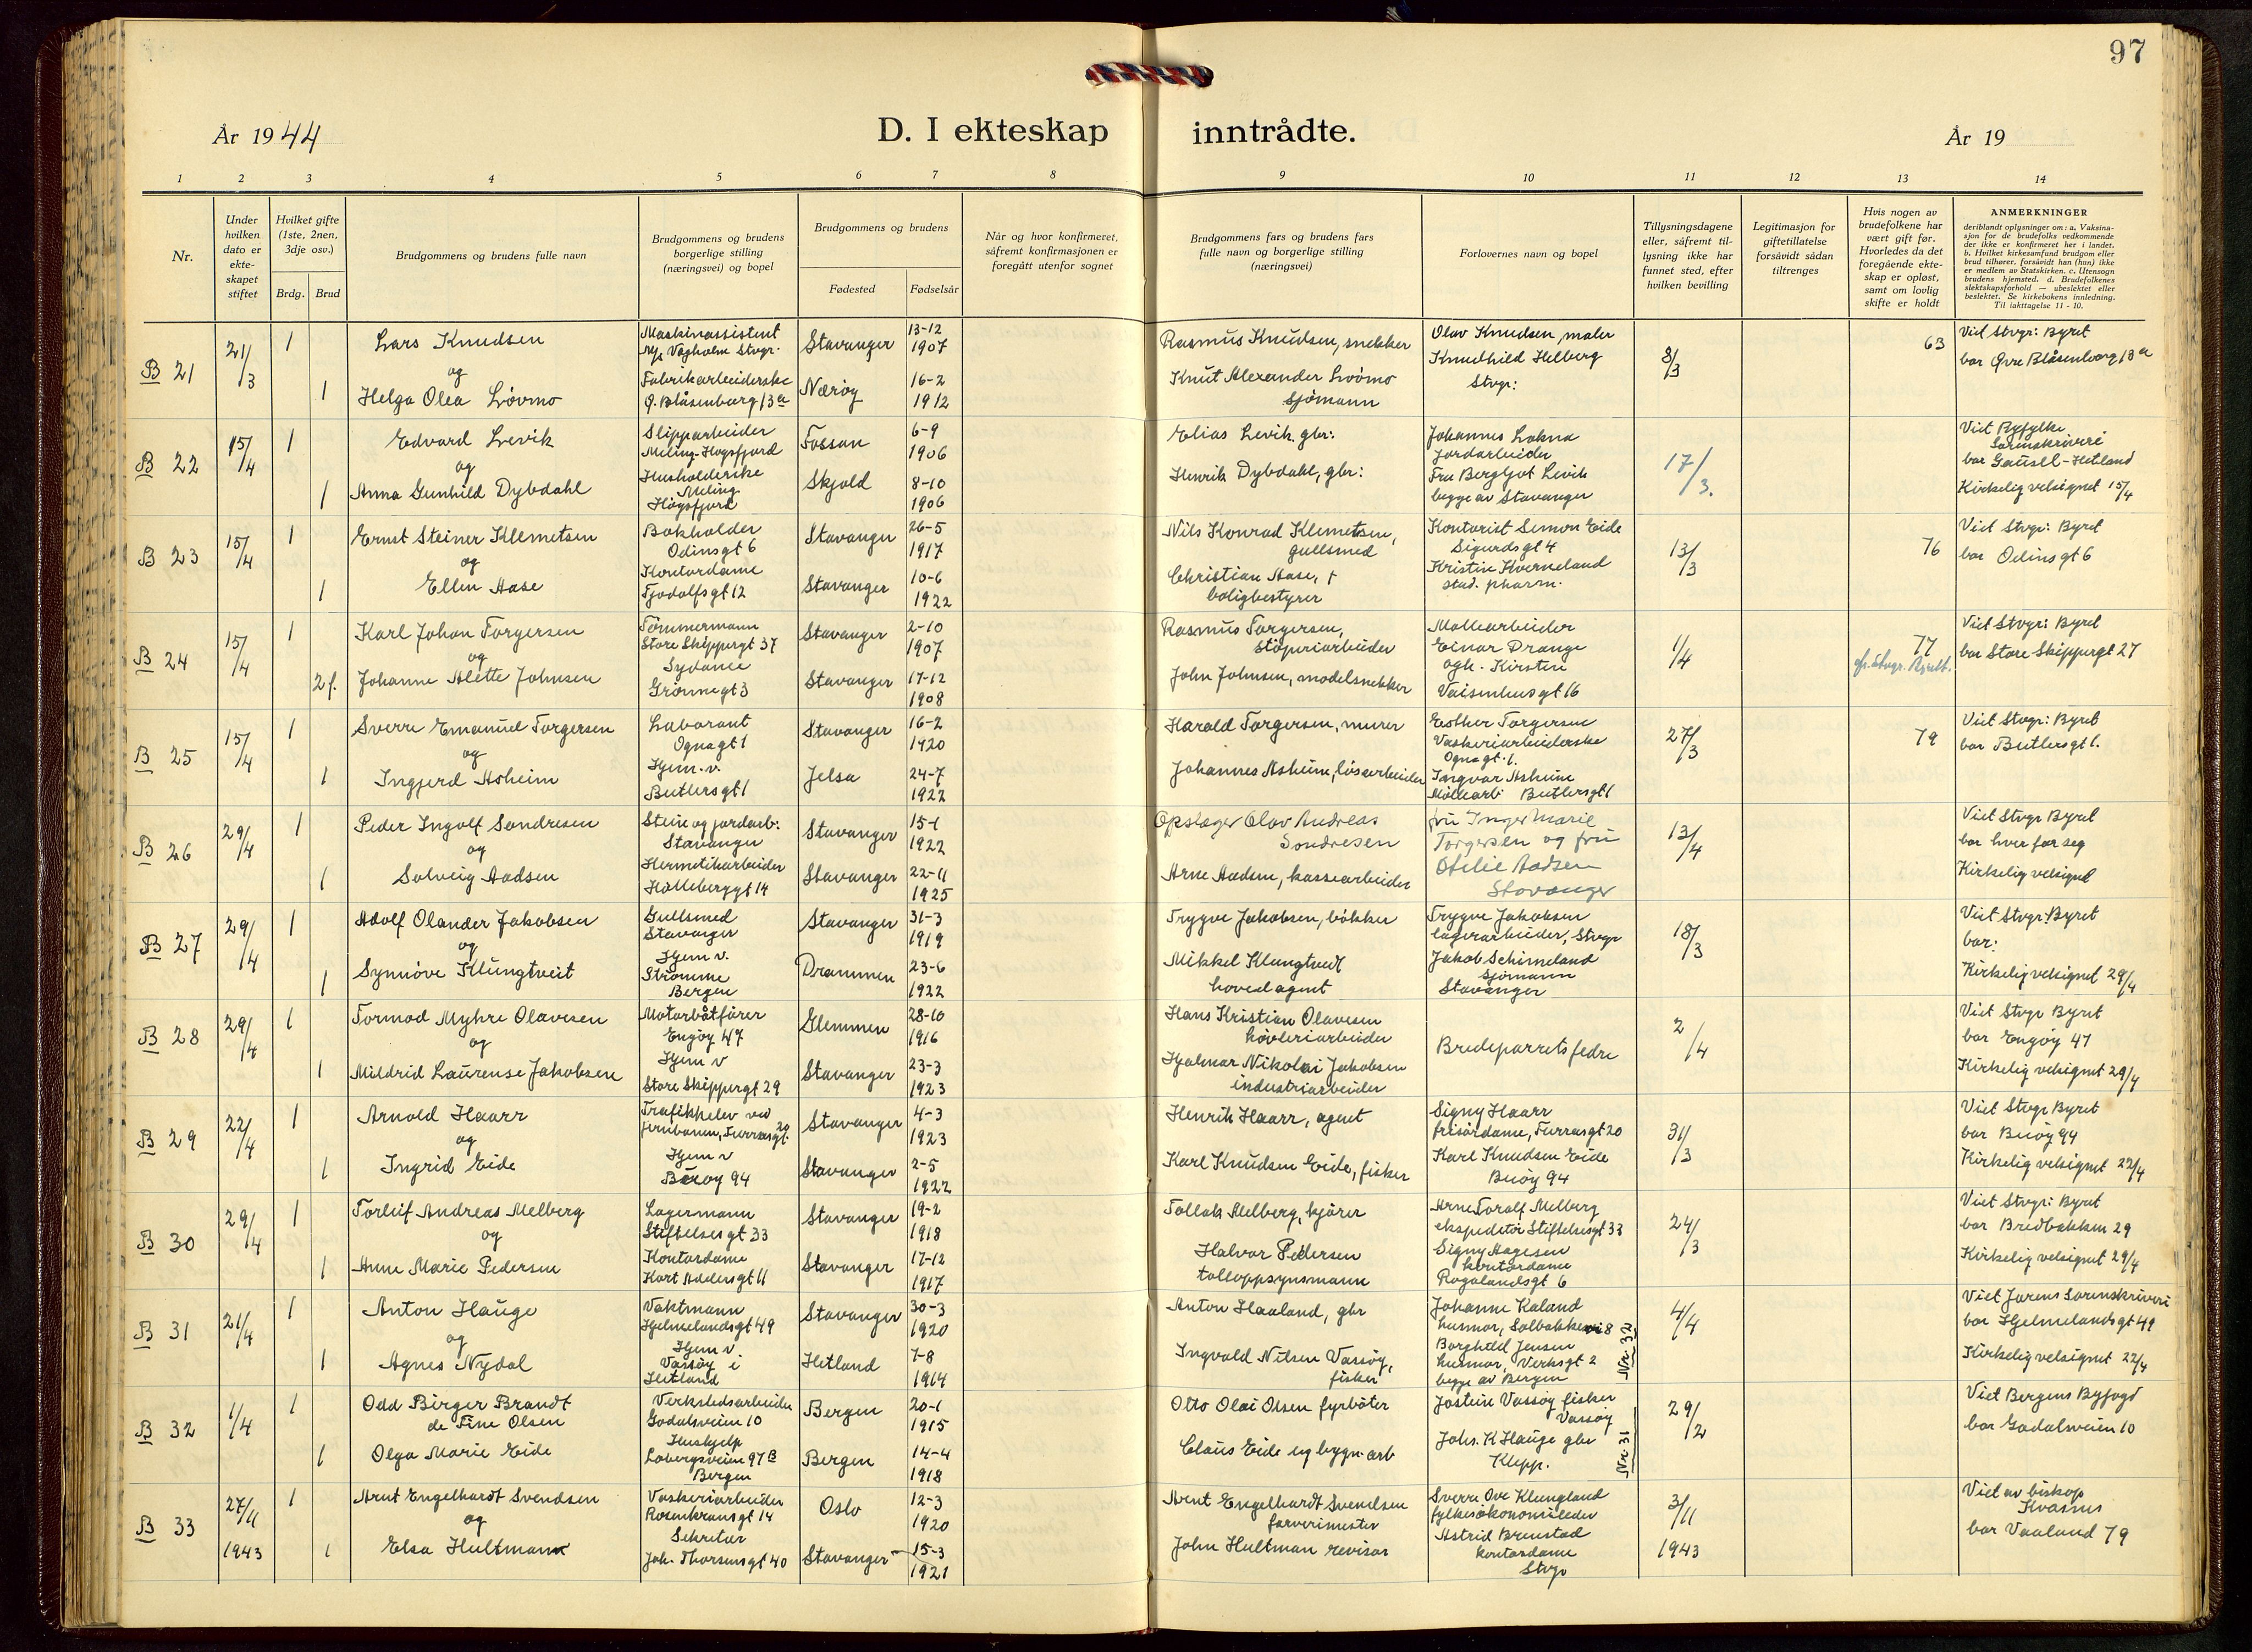 97
År 1944
D. I ekteskap inntrådte.
År 19
1 2 3 4 5 6 7 8 9 10 11 12 13 14
Nr.
Under hvilken dato er ekte-skapet stiftet
Hvilket gifte (1ste, 2nen, 3dje osv.)
Brdg. Brud
Brudgommens og brudens fulle navn
Brudgommens og brudens borgerlige stilling (næringsvei) og bopel
Brudgommens og brudens
Fødested Fødselsår
Når og hvor konfirmeret, såfremt konfirmasjonen er foregått utenfor sognet
Brudgommens fars og brudens fars fulle navn og borgerlige stilling (næringsvei)
Forlovernes navn og bopel
Tillysningsdagene eller, såfremt til-lysning ikke har funnet sted, efter hvilken bevilling
Legitimasjon for giftetillatelse forsåvidt sådan tiltrenges
Hvis nogen av brudefolkene har vært gift før. Hvorledes da det foregående ekte-skap er opløst, samt om lovlig skifte er holdt
ANMERKNINGER
deriblandt oplysninger om: a. Vaksina-
sjon for de brudefolks vedkommende
der ikke er konfirmeret her i landet.
b. Hvilket kirkesamfund brudgom eller
brud tilhører, forsåvidt han (hun) ikke
er medlem av Statskirken. c. Utensogn
brudens hjemsted. d. Brudefolkenes
slektskapsforhold — ubeslektet eller
beslektet. Se kirkebokens innledning.
Til iakttagelse 11 - 10.
B 21 21/3 1 Lars Knudsen Maskinassistent M/s Vågholm Stvgr. Stavanger 13-12 1907 Rasmus Knudsen, snekker Olav Knudsen, maler 8/3 63 Viet Stvgr: Byret
og Knudhild Helberg bor Øvre Blåsenborg 13a
1 Helga Olea Løvmo Fabrikarbeiderske Ø. Blåsenborg 13a Nærøy 16-2 1912 Knut Alexander Løvmo sjømann Stvgr:
B 22 15/4 1 Edvard Levik Sliparbeider Meling-Høgsfjord Fossan 6-9 1906 Elias Levik, gbr: Johannes Lokna Jordarbeider 17/3. Viet Ryfylke Sorenskriveri
og bor Gausel-Hetland
1 Anna Gunhild Dybdahl Husholderske Meling Høgsfjord Skjold 8-10 1906 Henrik Dybdahl, gbr: Fru Bergljot Levik begge av Stavanger Kirkelig velsignet 15/4
B 23 15/4 1 Ernst Steiner Klemetsen Bokholder Odinsgt 6 Stavanger 26-5 1917 Nils Konrad Klemetsen, gullsmed Kontorist Simon Eide Sigurdsgt 4 13/3 76 Viet Stvgr: Byret
og bor Odinsgt 6
1 Ellen Aase Kontordame Tjodolfsgt 12 Stavanger 10-6 1922 Christian Aase, † boligbestyrer Kristin Kverneland stud. pharm.
B 24 15/4 1 Karl Johan Torgersen Tømmermann Store Skippergt 37 Stavanger 2-10 1907 Rasmus Torgersen, støperiarbeider Møllearbeider Einar Drange 1/4 77 Viet Stvgr: Byret
og bor Store Skippergt 27
2 f. Johanne Alette Johnsen Sydame Grønnegt 3 Stavanger 17-12 1908 John Johnsen, modelsnekker ogh. Kirsten Vaisenhusgt 16
B 25 15/4 1 Sverre Emanuel Torgersen Laborant Ognagt 1 Stavanger 16-2 1920 Harald Torgersen, murer Esther Torgersen Vaskeriarbeiderske Ognagt. 1. 27/3 79 Viet Stvgr: Byret
og bor Butlersgt 1.
1 Ingjerd Asheim Hjem. v. Butlersgt 1 Jelsa 24-7 1922 Johannes Asheim, løsarbeider Ingvar Asheim Møllearb: Butlersgt 1
B 26 29/4 1 Peder Ingolf Sondresen Stein og jordarb: Stavanger Stavanger 15-1 1922 Opslager Olav Andreas Sondresen fru Inger Marie Torgersen og fru 13/4 Viet Stvgr Byret
og bor hver for seg
1 Solveig Aadsen Hermetikarbeider Hålleberggt 14 Stavanger 22-11 1925 Arne Aadsen, kassearbeider Otelie Aadsen Stavanger Kirkelig velsignet
B 27 29/4 1 Adolf Olander Jakobsen Gullsmed Stavanger Stavanger 31-3 1919 Trygve Jakobsen, bøkker Trygve Jakobsen lagerarbeider, Stvgr 18/3 Viet Stvgr: Byret
og bor:
1 Synnøve Klungtveit Hjem v. Strømme Bergen Drammen 23-6 1922 Mikkel Klungtvedt hovedagent Jakob Schimeland sjømann Stavanger Kirkelig velsignet 29/4
B 28 29/4 1 Tormod Myhre Olavesen Motorbåtfører Engøy 47 Glemmen 28-10 1916 Hans Kristian Olavesen høvleriarbeider Brudeparrets fedre 2/4 Viet Stvgr Byret
og bor Engøy 47
1 Mildrid Laurense Jakobsen Hjem v Store Skippergt 29 Stavanger 23-3 1923 Hjalmar Nikolai Jakobsen industriarbeider Kirkelig velsignet 29/4
B 29 22/4 1 Arnold Haarr Trafikkelev ved jernbanen, Furrasgt. 20 Stavanger 4-3 1923 Henrik Haarr, agent Signy Haarr frisørdame, Furrasgt 20 31/3 Viet Stvgr Byret
og bor Buøy 94
1 Ingrid Eide Hjem v Buøy 94 Stavanger 2-5 1922 Karl Knudsen Eide, fisker Karl Knudsen Eide Buøy 94 Kirkelig velsignet 22/4
B 30 29/4 1 Torleif Andreas Melberg Lagermann Stiftelsesgt 33 Stavanger 19-2 1918 Tollak Melberg, kjører Arne Toralf Melberg ekspeditør Stiftelsesgt 33 24/3 Viet Stvgr: Byret
og bor Bredbakken 29
1 Anne Marie Pedersen Kontordame Kort Adelersgt 11 Stavanger 17-12 1917 Halvor Pedersen tolloppsynsmann Signy Aagesen kontordame Rogalandsgt 6 Kirkelig velsignet 29/4
B 31 21/4 1 Anton Hauge Vaktmann Hjelmelandsgt 49 Stavanger 30-3 1920 Anton Haaland, gbr Johanne Kaland husmor, Solbakken 8 4/4 Viet Jærens Sorenskriveri
og bor Hjelmelandsgt 49
1 Agnes Nydal Hjem v Vassøy i Hetland Hetland 7-8 1914 Ingvald Nilsen Vassøy, fisker Borghild Jensen husmor, Verksgt 2 begge av Bergen Nr. 32 Kirkelig velsignet 22/4
B 32 1/4 1 Odd Birger Brandt de Fine Olsen Verkstedsarbeider Godalsveien 10 Bergen 20-1 1915 Otto Olai Olsen fyrbøter Jostein Vassøy fisker Vassøy 29/2 Viet Bergens Byfogd
bor Godalsveien 10
1 Olga Marie Eide Hushjelp Lobergsveien 97B Bergen Bergen 14-4 1918 Claus Eide byggn.arb Johs. K Hauge gbr Klepp. Nr. 31
B 33 27/11 1943 1 Arnt Engelhardt Svendsen Vaskeriarbeider Rosenkransgt 14 Oslo 12-3 1920 Arnt Engelhardt Svendsen farverimester Sverre Ove Klungland fylkesøkonomileder 3/11 1943 Viet av biskop Kvasnes
og bor Vaaland 79
1 Elsa Hultmann Sekretær Joh. Thorsensgt 40 Stavanger 15-3 1921 John Hultman revisor Astrid Brenstad kontordame Stvgr